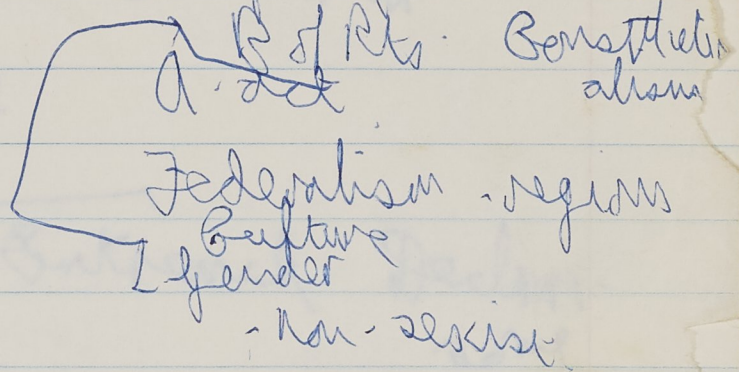 B of Rts. Constitution
alism
A. det
Federalism - regions
Culture
Gender
- Non-sexist